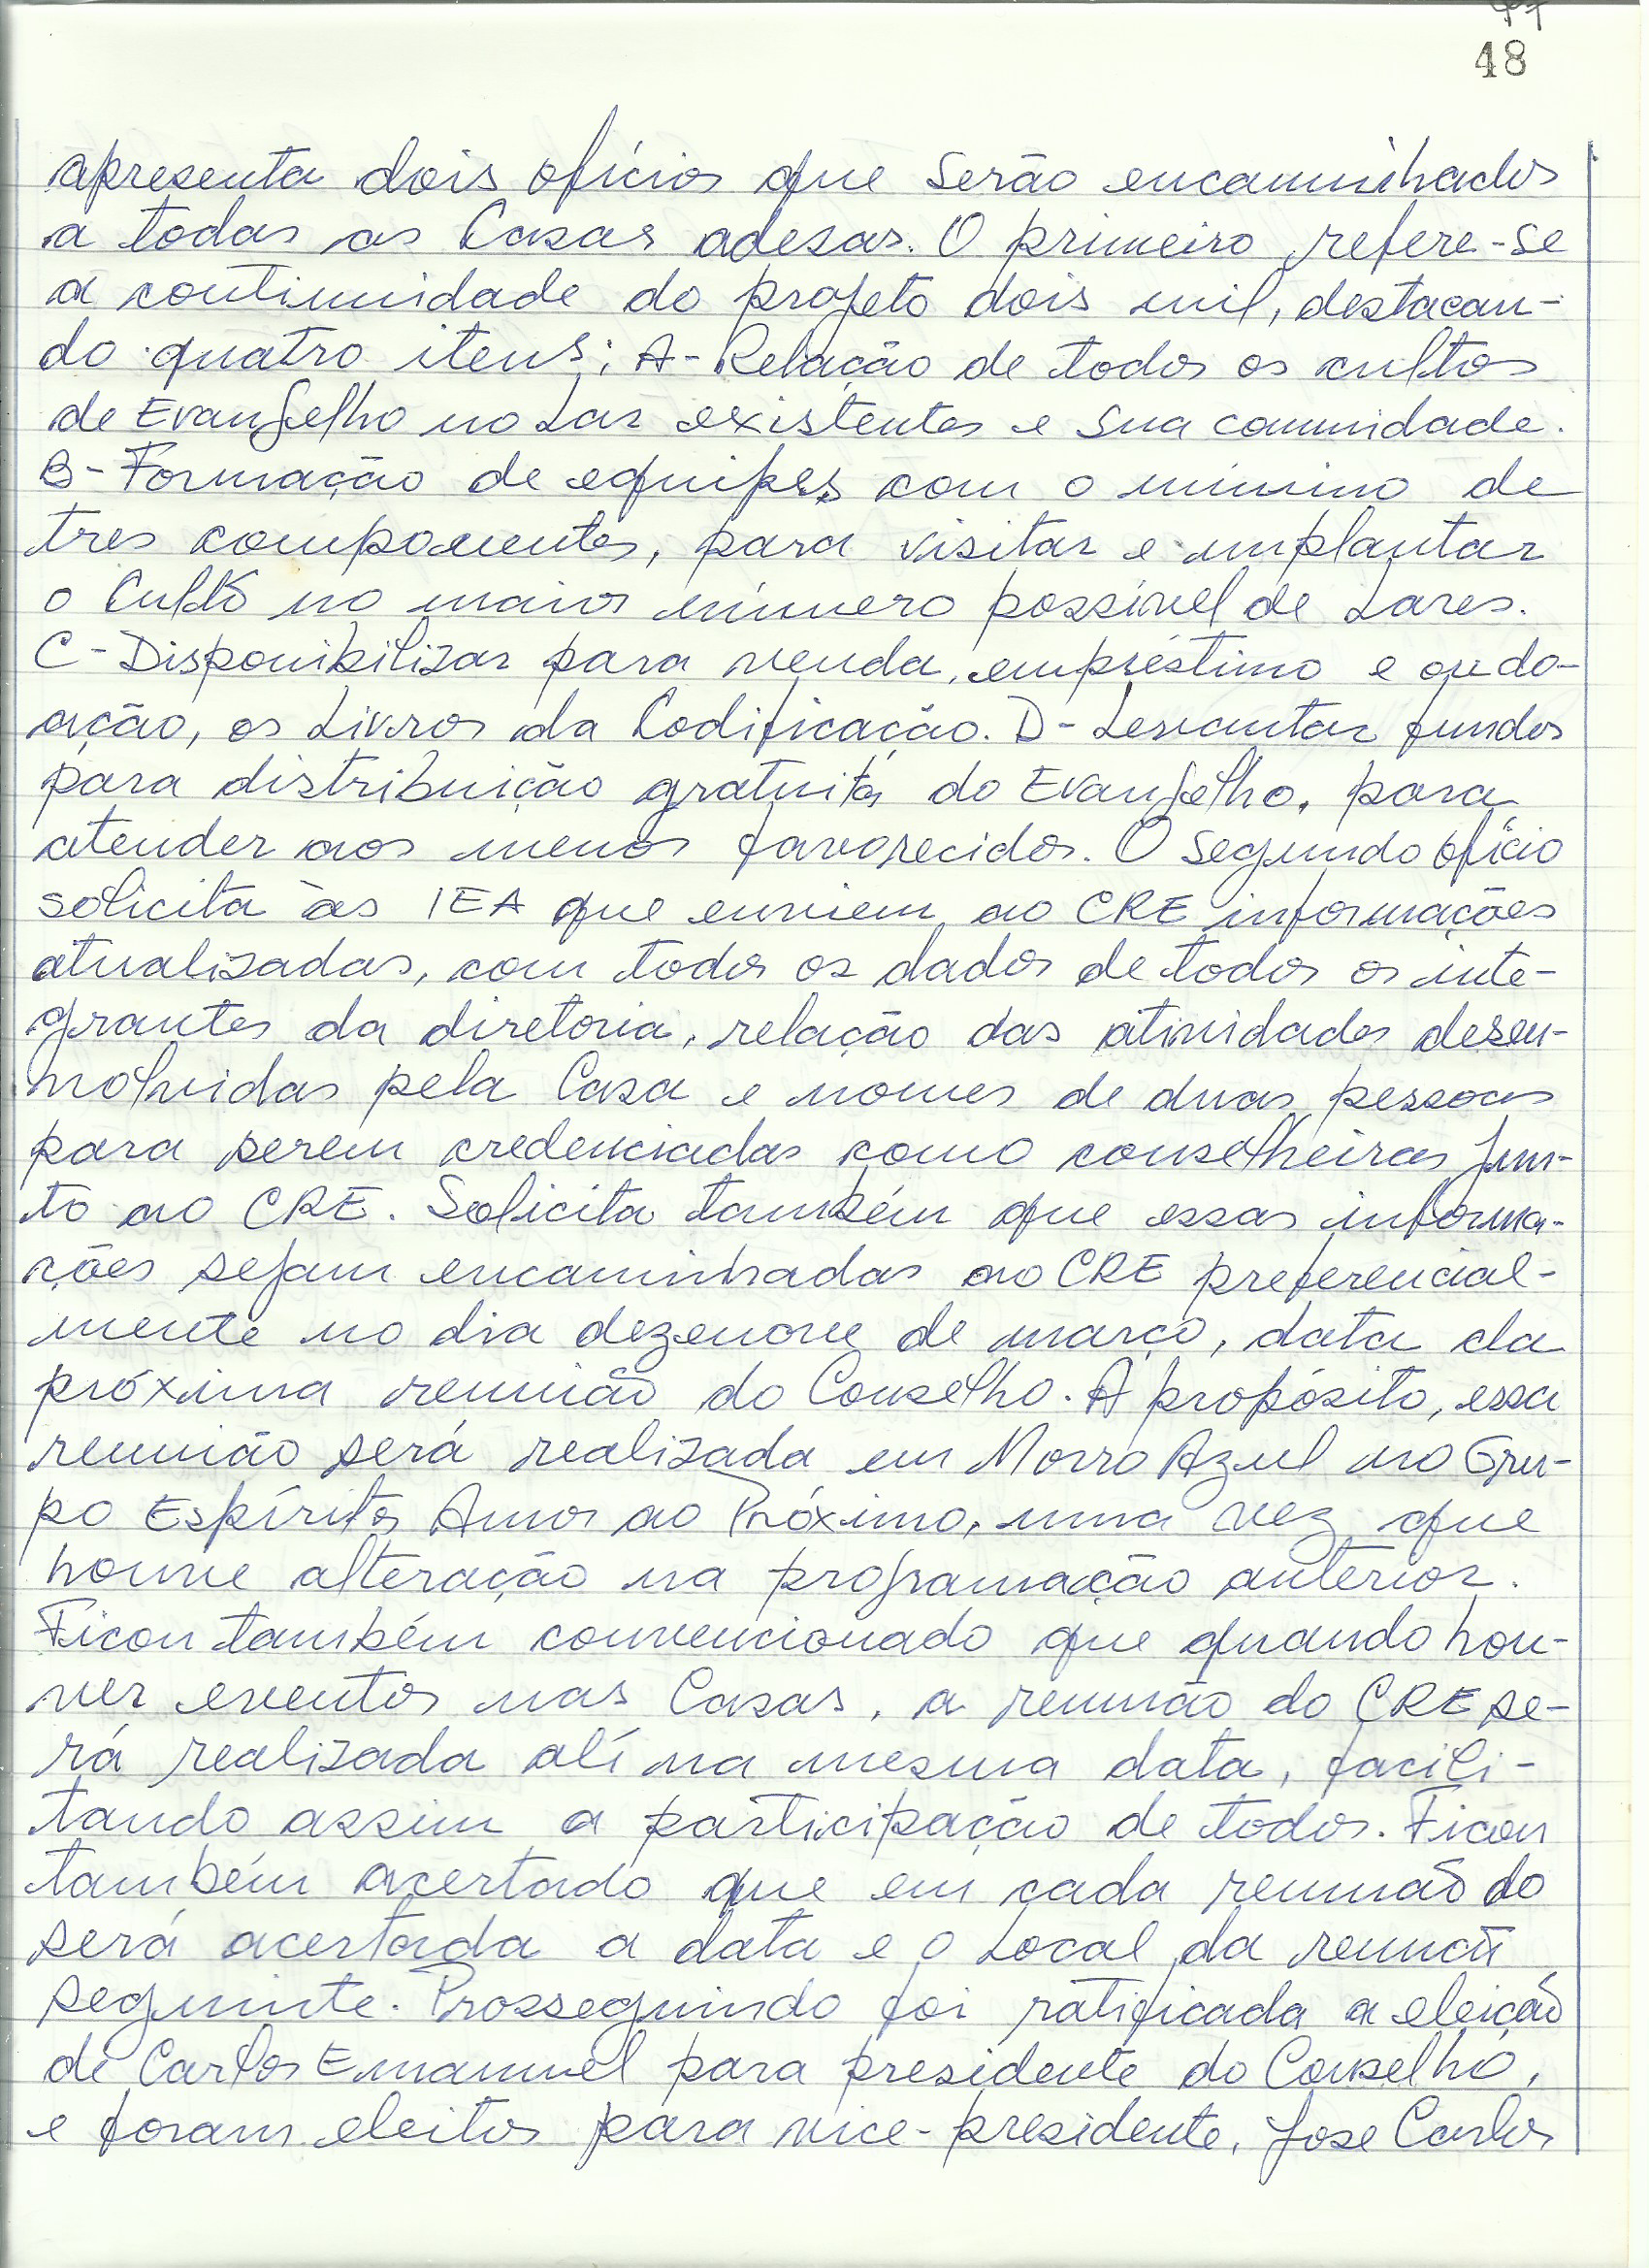 48
apresenta dois ofícios que serão encaminhados
a todas as Casas adesas. O primeiro refere-se
a continuidade do projeto dois mil, destacan-
do quatro itens: A- Relação de todos os cultos
de Evangelho no Lar existentes e sua comunidade.
B- Formação de equipes com o mínimo de
tres componentes, para visitar e implantar
o Culto no maior número possível de Lares.
C- Disponibilizar para venda, empréstimo e ou do-
ação, os Livros da Codificação. D- Levantar fundos
para distribuição gratuita do Evangelho, para
atender aos menos favorecidos. O segundo ofício
solicita às IEA que enviem ao CRE informações
atualizadas, com todos os dados de todos os inte-
grantes da diretoria, relação das atividades desen-
volvidas pela Casa e nomes de duas pessoas
para serem credenciadas como conselheiras jun-
to ao CRE. Solicita também que essas informa-
ções sejam encaminhadas ao CRE preferencial-
mente no dia dezenove de março, data da
próxima reunião do Conselho. A propósito, essa
reunião será realizada em Morro Azul no Gru-
po Espírita Amor ao Próximo, uma vez que
houve alteração na programação anterior.
Ficou também convencionado que quando hou-
ver eventos nas Casas, a reunião do CRE se-
rá realizada alí na mesma data, facili-
tando assim a participação de todos. Ficou
também acertado que em cada reunião do
será acertada a data e o Local da reunião
seguinte. Prosseguindo foi ratificada a eleição
de Carlos Emanuel para presidente do Conselho,
e foram eleitos para vice-presidente, Jose Carlos